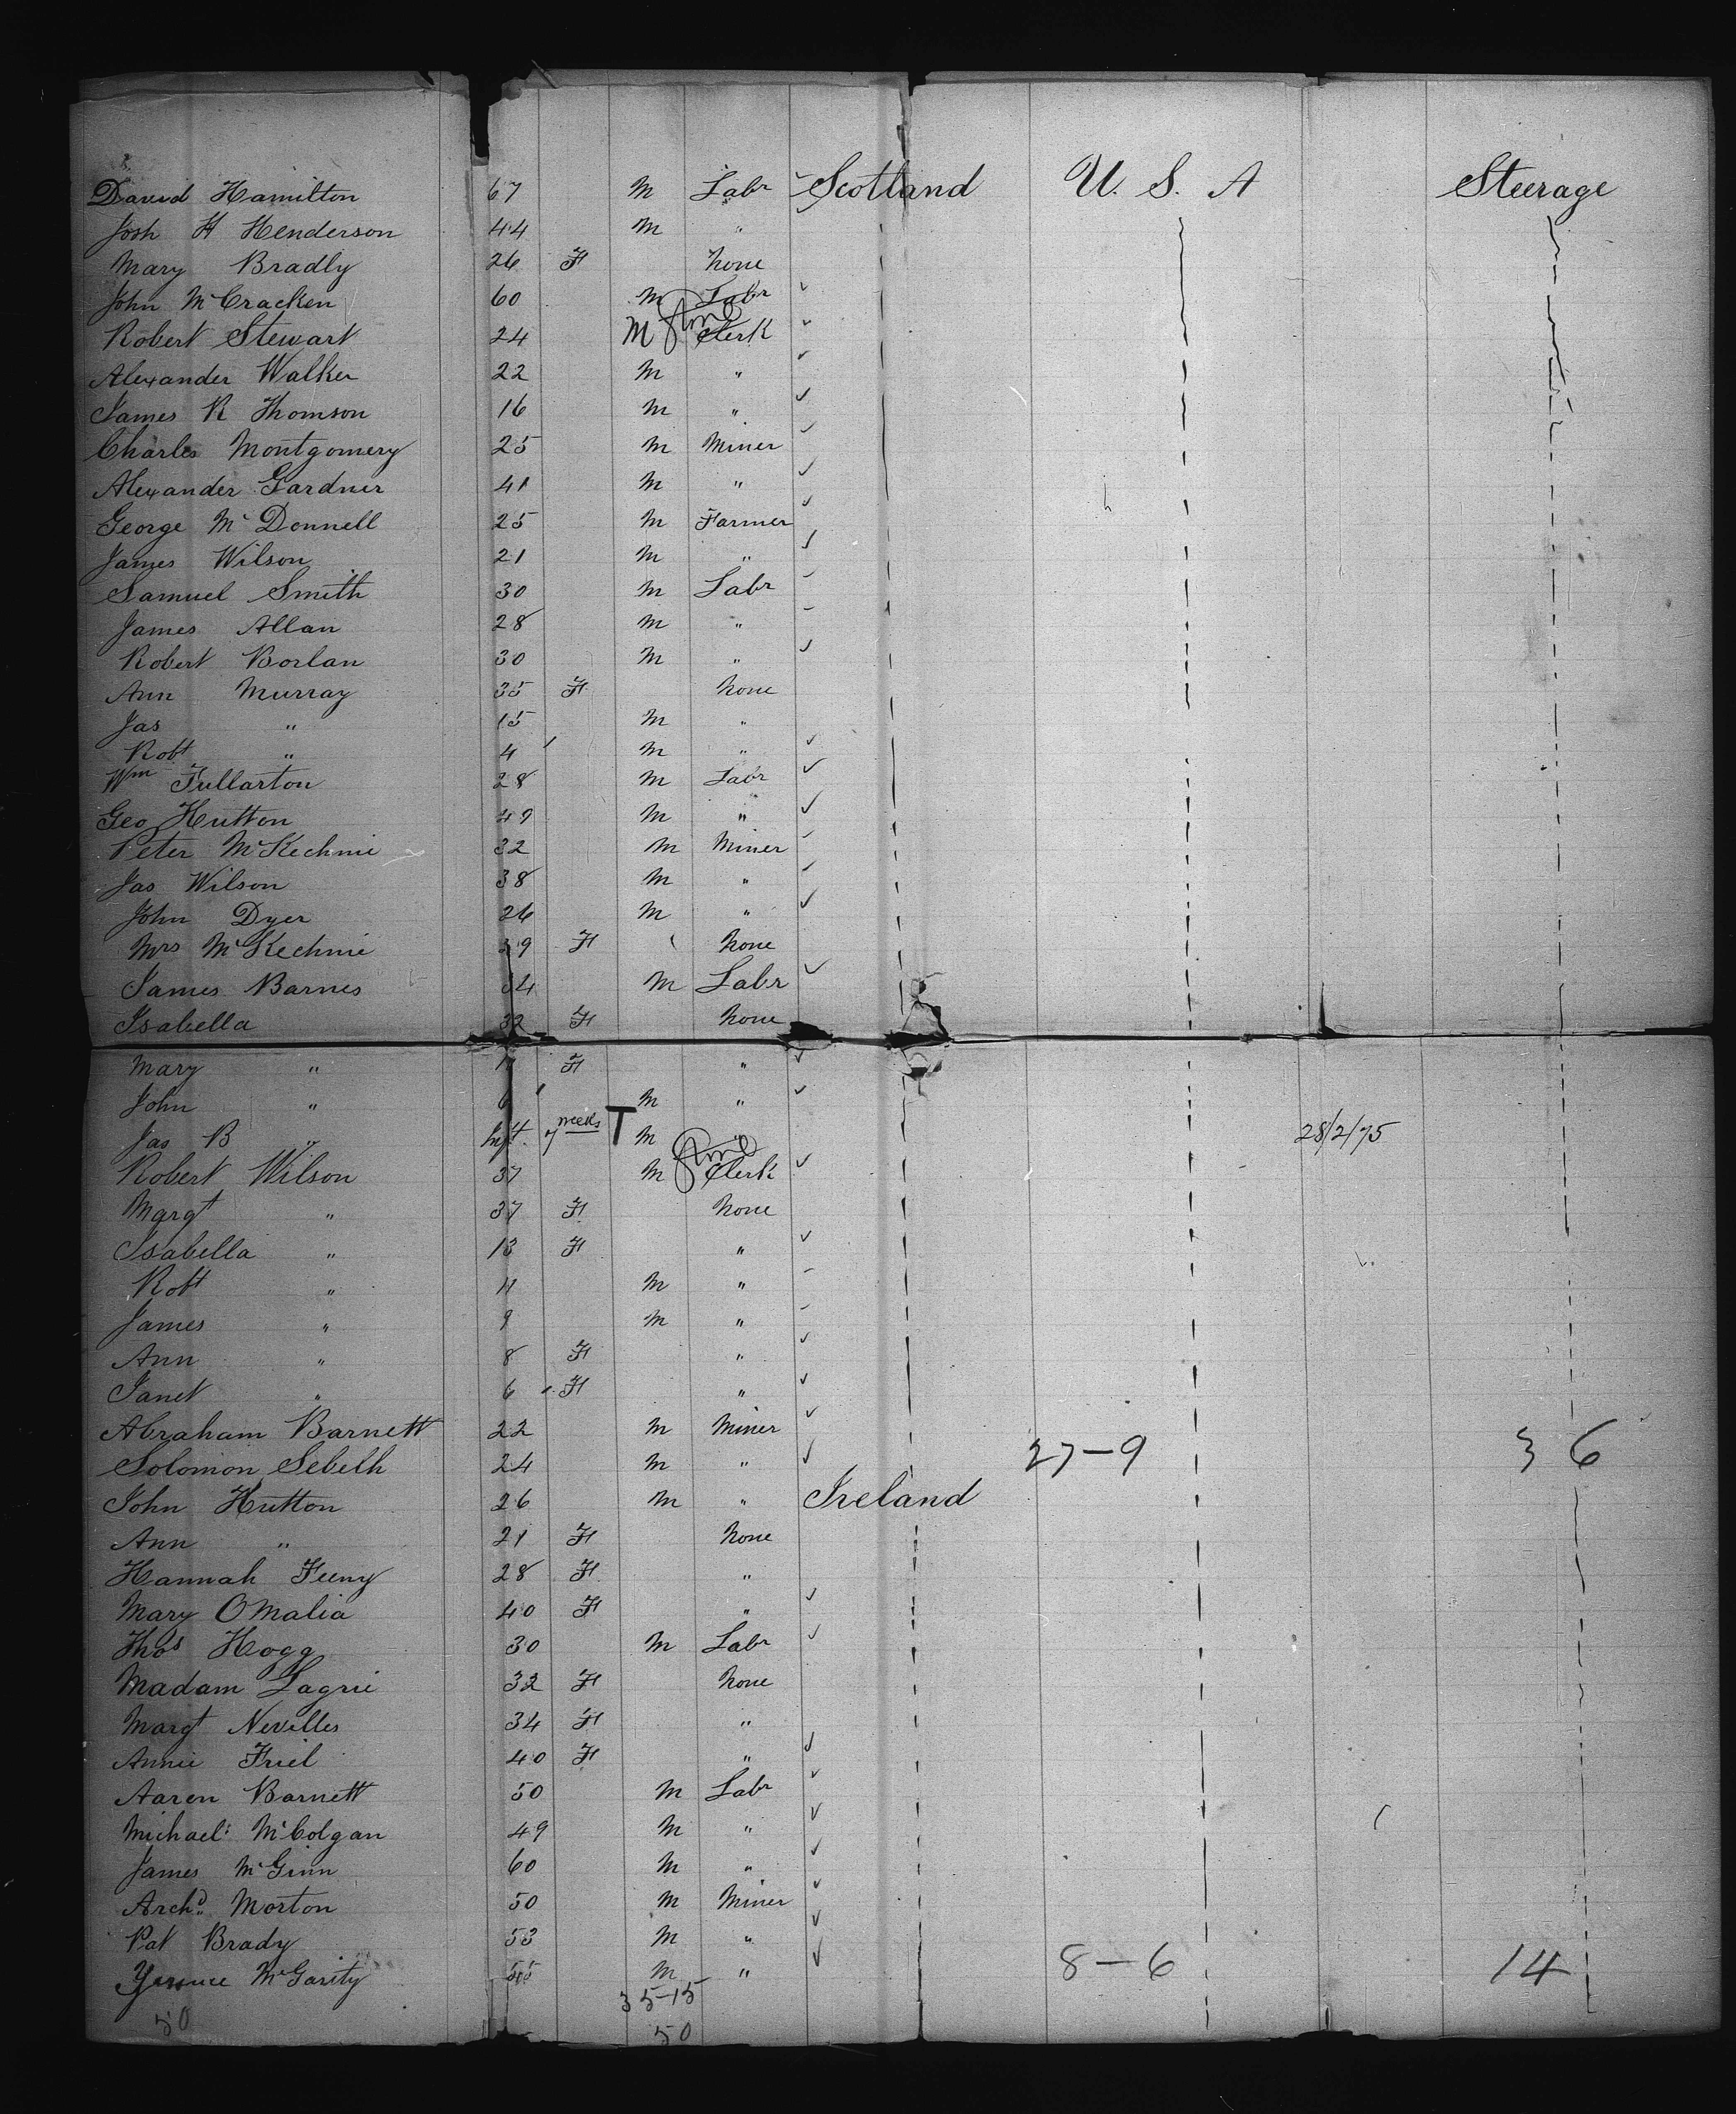 David Hamilton 67 M Labr Scotland U. S. A Steerage
Josh H Henderson 44 M "
Mary Bradly 26 F None
John McCracken 60 M Labr
Robert Stewart 24 M Clerk
Alexander Walker 22 M "
James R Thomson 16 M "
Charles Montgomery 25 M Miner
Alexander Gardner 41 M "
George McDonnell 25 M Farmer
James Wilson 21 M "
Samuel Smith 30 M Labr
James Allan 28 M "
Robert Borlan 30 M "
Ann Murray 35 F None
Jas " 15 M "
Robt " 4 M "
Wm Fullarton 28 M Labr
Geo Hutton 49 M "
Peter McKechnie 32 M Miner
Jas Wilson 38 M "
John Dyer 26 M "
Mrs McKechnie 29 F None
James Barnes 34 M Labr
Isabella 32 F None
Mary " F "
John " 6 M "
Jas B " Inft. 7 weeks T M " 28/2/75
Robert Wilson 37 M Clerk
Margt " 37 F None
Isabella " 13 F "
Robt " 11 M "
James " 9 M "
Ann " 8 F "
Janet " 6 F "
Abraham Barnett 22 M Miner
Solomon Sebelh 24 M " 27-9 36
John Hutton 26 M " Ireland
Ann " 21 F None
Hannah Feeny 28 F "
Mary OMalia 40 F "
Thos Hogg 30 M Labr
Madam Lagrie 32 F None
Margt Nevilles 34 F "
Annie Friel 40 F "
Aaren Barnett 50 M Labr
Michael McColgan 49 M "
James McGinn 60 M "
Archd Morton 50 M Miner
Pat Brady 53 M "
McGarity 55 M " 8-6 14
35-15
50 50